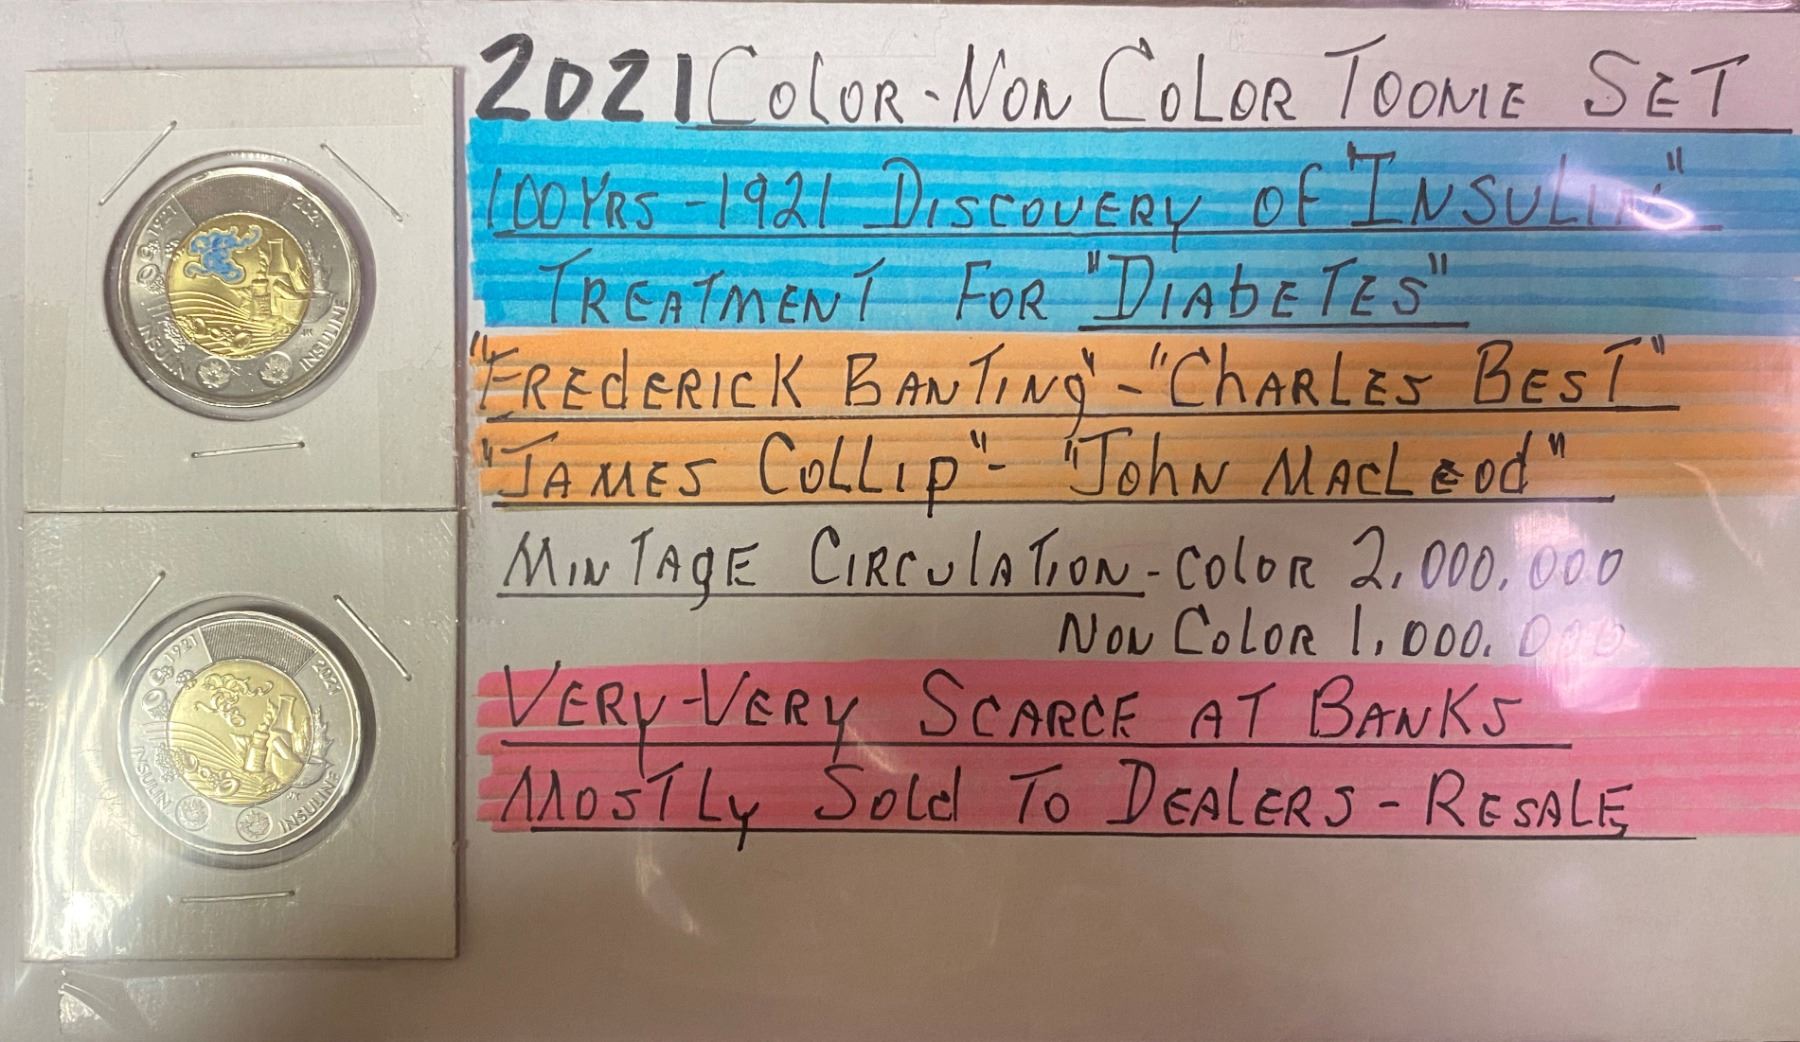 2021 COLOR - NON COLOR TOONIE SET
100 YRS - 1921 DISCOVERY OF "INSULIN"
TREATMENT FOR "DIABETES"
"FREDERICK BANTING" - "CHARLES BEST"
"JAMES COLLIP" - "JOHN MACLEOD"
MINTAGE CIRCULATION - COLOR 2,000,000
NON COLOR 1,000,000
VERY-VERY SCARCE AT BANKS
MOSTLY SOLD TO DEALERS - RESALE
1921 2021
INSULIN INSULINE
1921 2021
INSULIN INSULINE